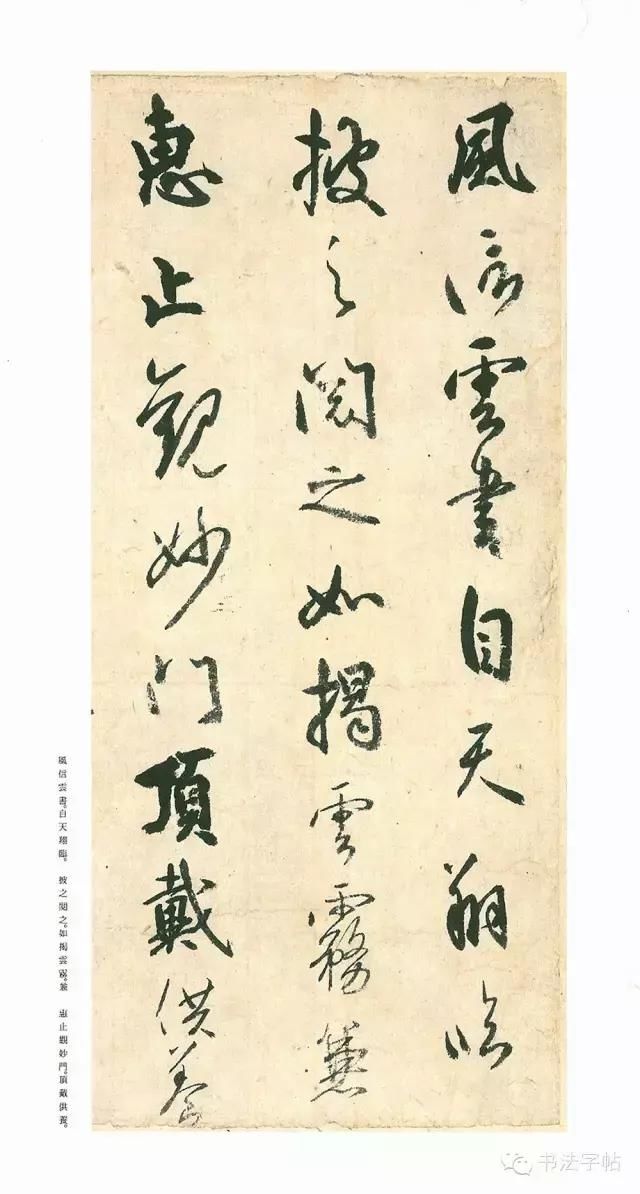 風信雲書自天翔臨
披之閱之如揭雲霧兼
惠止觀妙門頂戴供養
風信雲書。自天翔臨。 披之閱之。如揭雲霧。兼 惠止觀妙門。頂戴供養。
书法字帖